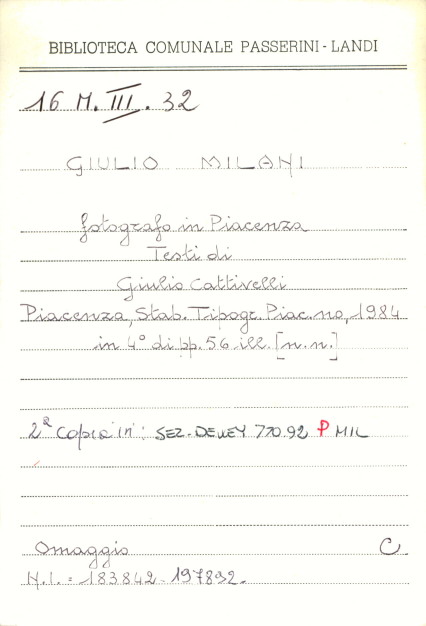 BIBLIOTECA COMUNALE PASSERINI-LANDI
16 M. III. 32
GIULIO MILANI
fotografo in Piacenza
Testi di
Giulio Cattivelli
Piacenza, Stab. Tipogr. Piac.no, 1984
in 4° di pp. 56 ill. [n.n.]
2ª Copia in: SEZ. DEWEY 770.92 P MIL
Omaggio C.
N.I. = 183842 - 197892.